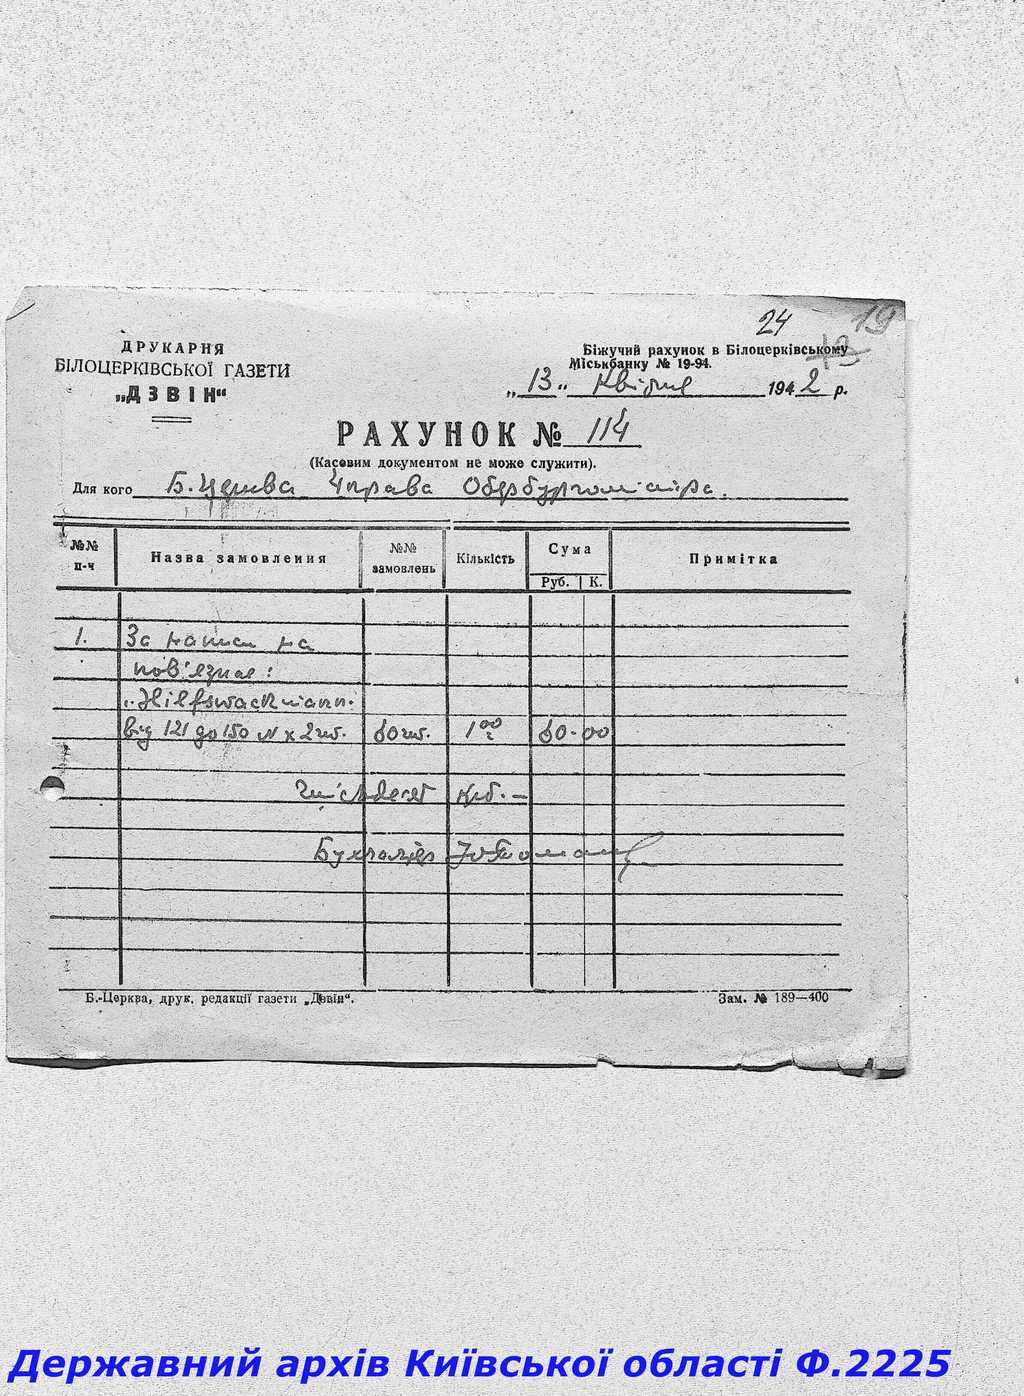 24 19
13
ДРУКАРНЯ
БІЛОЦЕРКІВСЬКОЇ ГАЗЕТИ
„ДЗВІН“
Біжучий рахунок в Білоцерківському
Міськбанку № 19-94.
„13„ Квітня 1942 р.
РАХУНОК № 114
(Касовим документом не може служити).
Для кого Б. Церква Управа Обербургомістра.
№№ п-ч Назва замовлення №№ замовлень Кількість Сума Руб. К. Примітка
1. За написи на
пов'язках:
„Hilfswachmann.
від 121 до 150 N x 2 шт. 60 шт. 1 00 60-00
Шістдесят крб. —
Бухгалтер
Б.-Церква, друк. редакції газети „Дзвін“. Зам. № 189—400
Державний архів Київської області Ф.2225